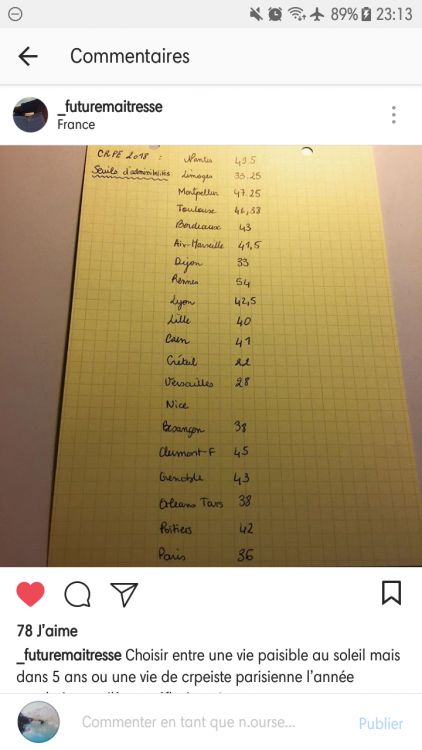 89% 23:13
Commentaires
_futuremaitresse
France
CRPE 2018 : Nantes 49.5
Seuils d'admissibilités Limoges 33.25
Montpellier 47.25
Toulouse 46,38
Bordeaux 43
Aix-Marseille 41,5
Dijon 33
Rennes 54
Lyon 42,5
Lille 40
Caen 41
Créteil 22
Versailles 28
Nice
Besançon 38
Clermont-F 45
Grenoble 43
Orléans Tours 38
Poitiers 42
Paris 36
78 J'aime
_futuremaitresse Choisir entre une vie paisible au soleil mais
dans 5 ans ou une vie de crpeiste parisienne l'année
Commenter en tant que n.ourse...
Publier